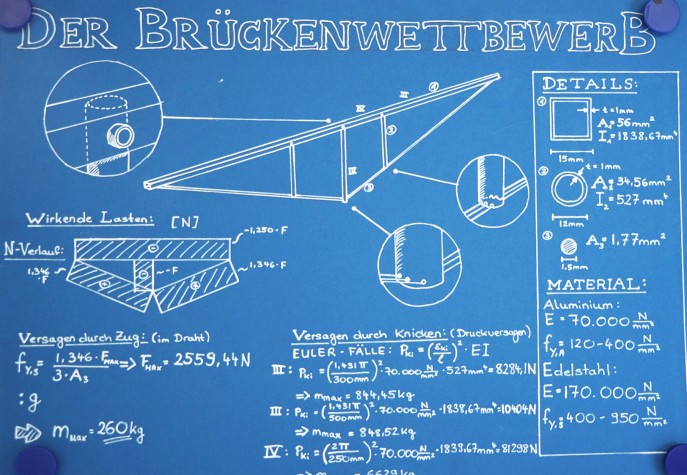 DER BRÜCKENWETTBEWERB
III
IV
①
②
III
③
DETAILS:
①
t=1mm
A₁=56mm²
I₁=1838,67mm⁴
15mm
②
t=1mm
A₂=34,56mm²
I₂=527 mm⁴
12mm
③
A₃=1,77mm²
1,5mm
MATERIAL:
Aluminium:
E=70.000 N/mm²
f_y,A=120-400 N/mm²
Edelstahl:
E=170.000 N/mm²
f_y,S=400-950 N/mm²
Wirkende Lasten: [N]
N-Verlauf:
-1,250·F
1,346·F
-F
1,346·F
Versagen durch Zug: (im Draht)
f_y,S = 1,346·F_MAX / 3·A₃ => F_MAX = 2559,44N
:g
⇨ m_MAX = 260kg
Versagen durch Knicken: (Druckversagen)
EULER-FÄLLE: P_ki = (ε_ki/ℓ)²·EI
III: P_ki = (1,431π/300mm)²·70.000 N/mm²·527mm⁴=8284,1N
=> m_max = 844,45kg
III: P_ki = (1,431π/500mm)²·70.000 N/mm²·1838,67mm⁴=10404N
=> m_max = 848,52kg
IV: P_ki = (2π/250mm)²·70.000 N/mm²·1838,67mm⁴=81298N